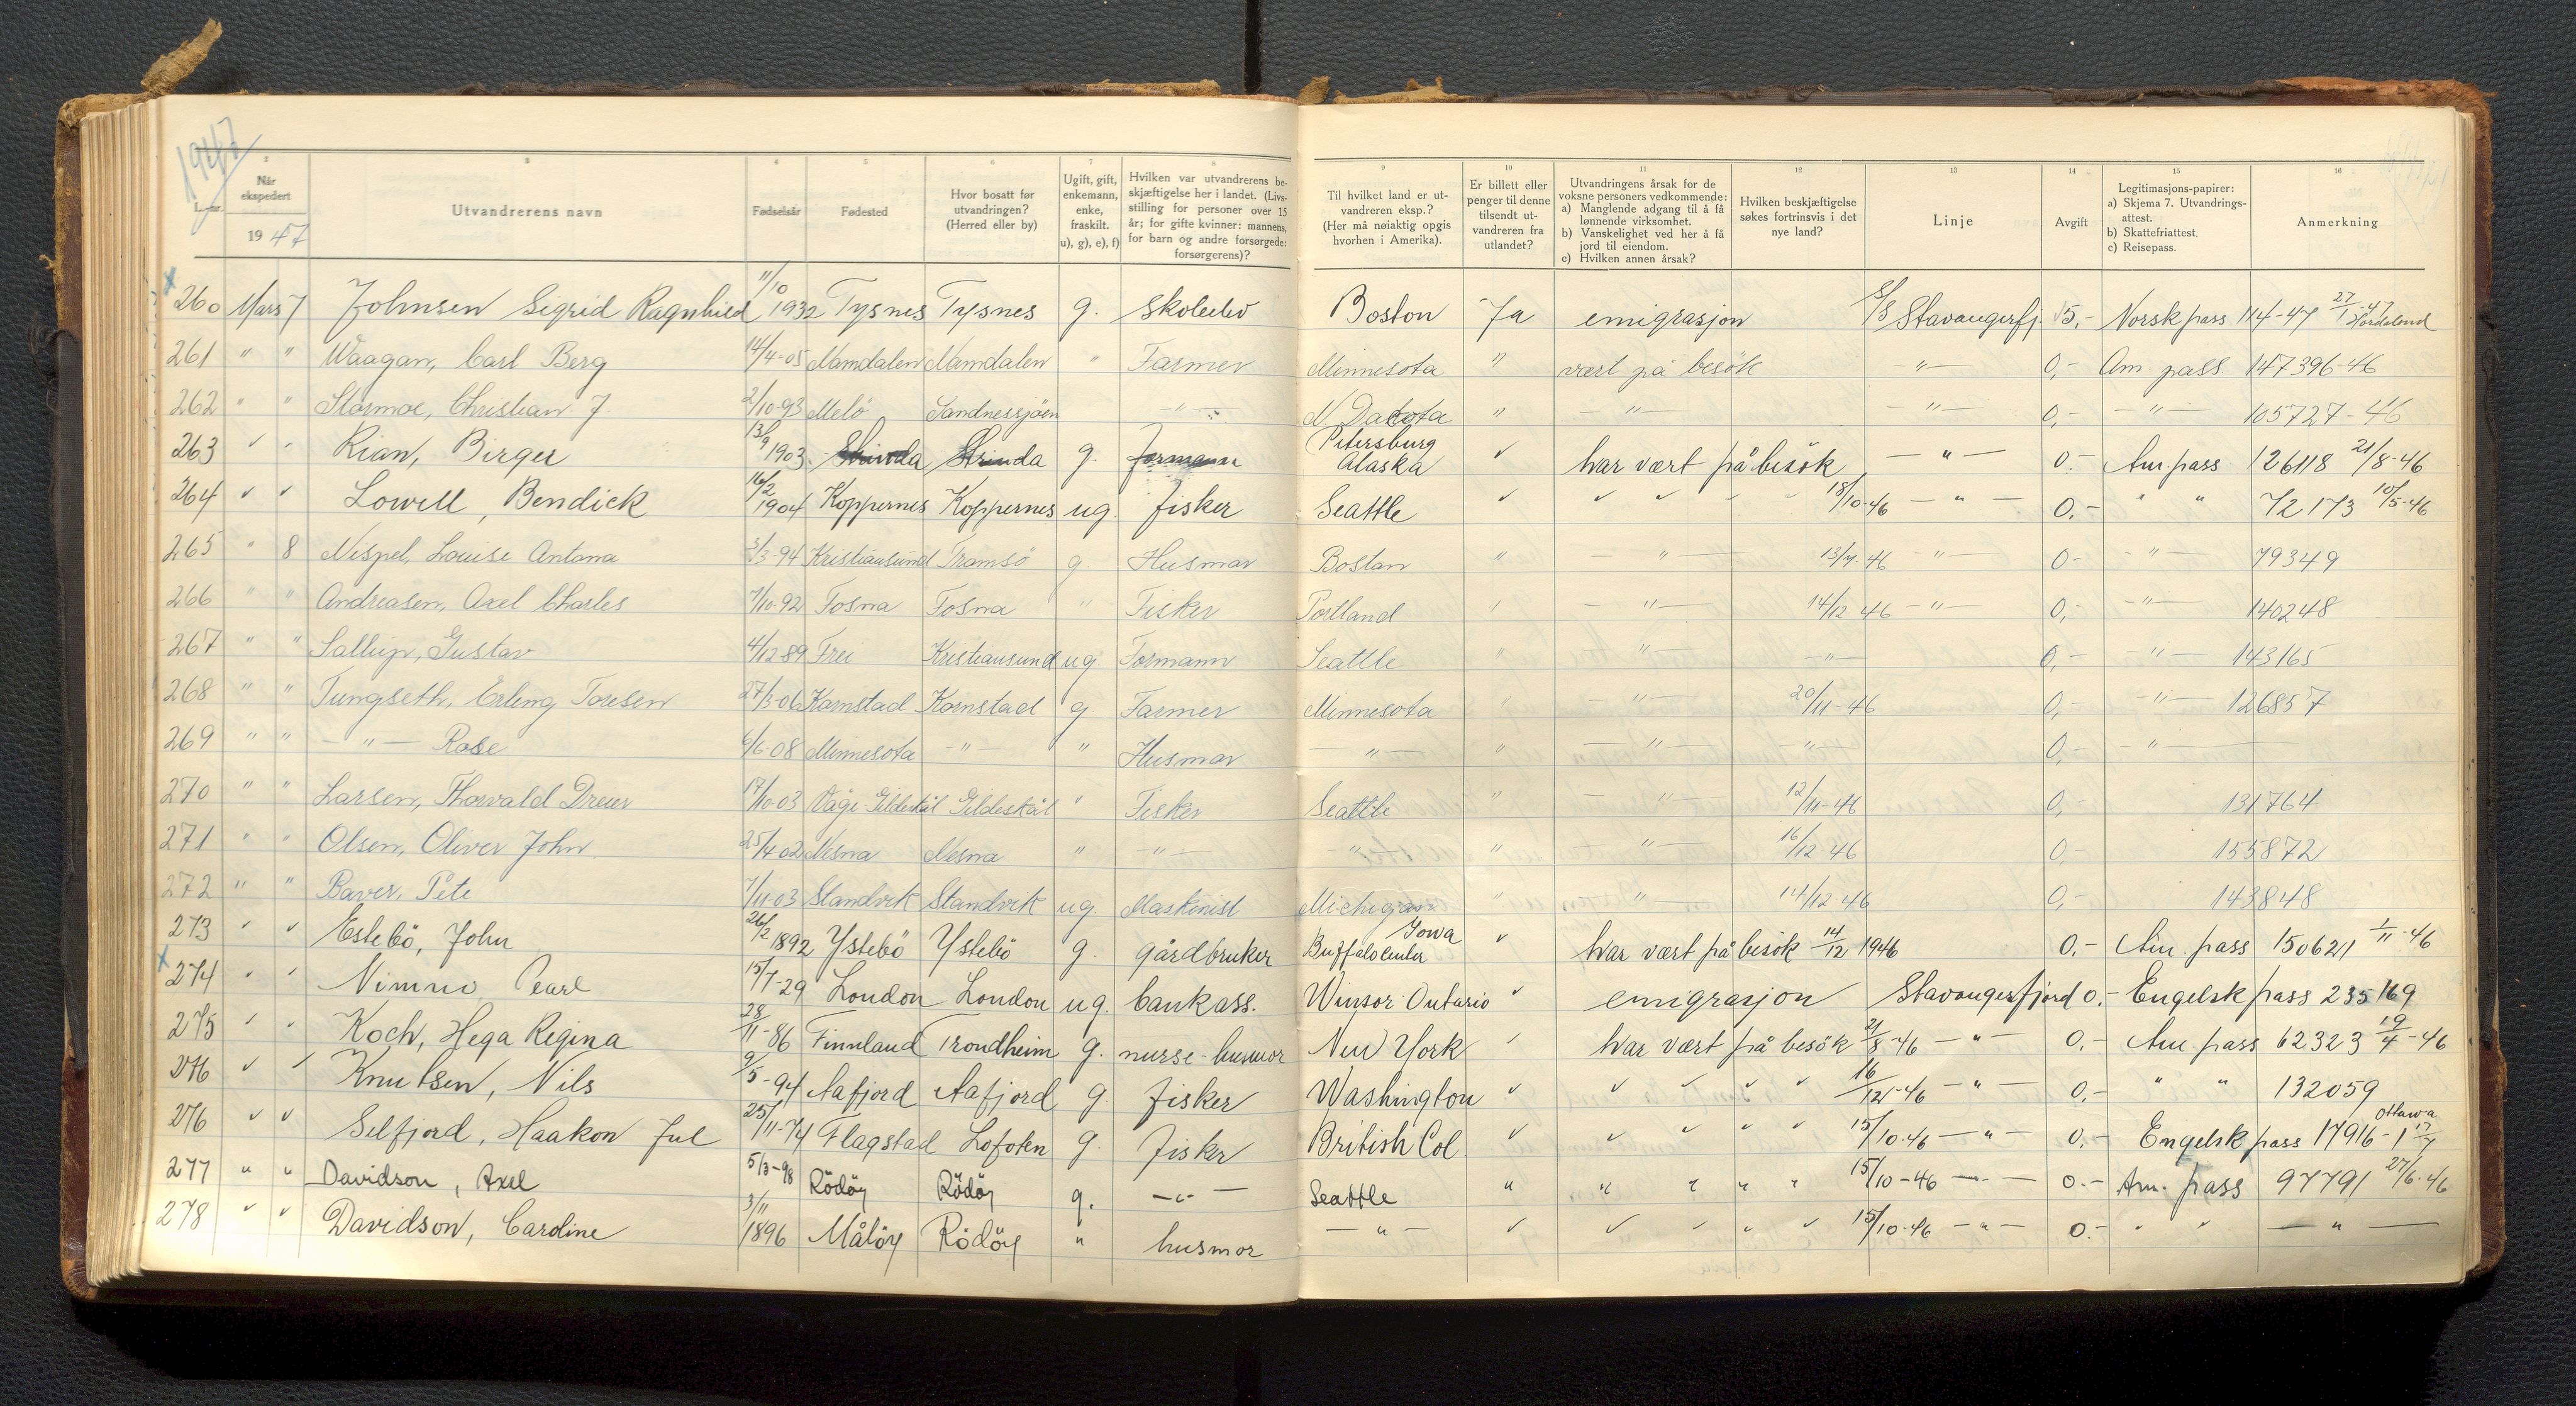 1947
2 3 4 5 6 7 8 9 10 11 12 13 14 15 16
L.-nr.
Når ekspedert 1947
Utvandrerens navn
Fødselsår
Fødested
Hvor bosatt før utvandringen? (Herred eller by)
Ugift, gift, enkemann, enke, fraskilt. u), g), e), f)
Hvilken var utvandrerens beskjæftigelse her i landet. (Livsstilling for personer over 15 år; for gifte kvinner: mannens, for barn og andre forsørgede: forsørgerens)?
Til hvilket land er utvandreren eksp.? (Her må nøiaktig opgis hvorhen i Amerika).
Er billett eller penger til denne tilsendt utvandreren fra utlandet?
Utvandringens årsak for de voksne personers vedkommende: a) Manglende adgang til å få lønnende virksomhet. b) Vanskelighet ved her å få jord til eiendom. c) Hvilken annen årsak?
Hvilken beskjæftigelse søkes fortrinsvis i det nye land?
Linje
Avgift
Legitimasjons-papirer: a) Skjema 7. Utvandringsattest. b) Skattefriattest. c) Reisepass.
Anmerkning
260 Mars 7 Johnsen Sigrid Ragnhild 11/10 1932 Tysnes Tysnes g. Skoleelev Boston Ja emigrasjon S/S Stavangerfj. 5,- Norsk pass 114-47 27/1-47 Hordaland
261 " " Waagan, Carl Berg 14/4-05 Namdalen Namdalen " Farmer Minnesota " vært på besök -"- 0,- Am pass 147396-46
262 " " Stormoe, Christian J. 2/10-93 Melö Sandnessjöen -"- N Dacota " -"- -"- 0,- -"- 105727-46
263 " " Rian, Birger 13/9 1903 Strinda Strinda g. formann Petersburg Alaska " har vært på besök -"- 0.- Am. pass 126118 21/8-46
264 " " Lowell, Bendick 16/2 1904 Koppernes Koppernes ug. fisker Seattle " " " " " 18/10-46 -"- 0.- " " 72173 10/5-46
265 " 8 Nespel, Louise Antona 3/3-94 Kristiansund Tromsö g. Husmor Boston " " 13/7 46 -"- 0- -"- 79349
266 " " Andreasen, Axel Charles 7/10-92 Fosna Fosna " Fisker Portland " -"- 14/12 46 -"- 0,- -"- 140248
267 " " Sallup, Gustav 4/12 89 Frei Kristiansund ug Formann Seattle " " -"- 0,- -"- 143165
268 " " Tungseth, Erling Toresen 27/3-06 Kornstad Kornstad g. Farmer Minnesota " -"- 20/11-46 0,- -"- 126857
269 " " -"- Rose 6/6-08 Minnesota -"- " Husmor -"- " -"- -"- 0,- -"-
270 " " Larsen, Thorvald Dreier 17/10-03 Våge Gildeskål Gildeskål " Fisker Seattle " -"- 12/11-46 0,- 131764
271 " " Olsen, Oliver John 25/4 02 Nesna Nesna " -"- -"- " -"- 16/12 46 0,- 155872
272 " " Baver, Pete 7/11-03 Standvik Standvik ug. Maskinist Michigan " " 14/12-46 0,- 143848
273 " " Estebö, John 26/2 1892 Ystebö Ystebö g. gårdbruker Buffalo Center Iowa " har vært på besök 14/12 1946 0.- Am. pass 150621 1/11-46
274 " " Nimmo Pearl 15/7-29 London London ug. bankass. Winsor Ontario " emigrasjon Stavangerfjord 0.- Engelsk pass 235169
275 " " Koch, Hega Regina 28/11-86 Finnland Trondheim g. nurse-husmor New York " har vært på besök 21/8-46 -"- 0.- Am. pass 62323 19/4-46
276 " " Knutsen, Nils 9/5-94 Aafjord Aafjord g. fisker Washington " " " " " 16/12-46 -"- 0.- " " 132059
276 " " Selfjord, Haakon Jul 25/11-74 Flagstad Lofoten g. fisker British Col " " " " " 15/10.46 -"- 0.- Engelsk pass 17916- Ottawa 17/7
277 " " Davidson, Axel 5/3-98 Rödöy Rödöy g. -"- Seattle " " " " " 15/10-46 -"- 0.- Am. pass 97791 27/6-46
278 " " Davidson, Caroline 3/11 1896 Målöy Rödöy " husmor -"- " " " " " 15/10-46 -"- 0.- " " -"-